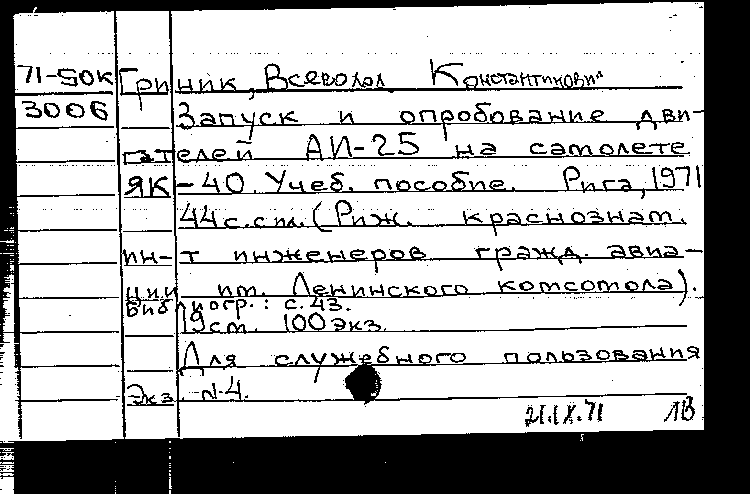 71-50К Гриник, Всеволод Константинович
3006 Запуск и опробование дви-
гателей АИ-25 на самолете
ЯК-40. Учеб. пособие. Рига, 1971
44 с. с ил. (Риж. краснознам.
ин-т инженеров гражд. авиа-
ции им. Ленинского комсомола).
Библиогр.: с. 43.
19 см. 100 экз.
Для служебного пользования
Экз. N 4.
21.IX.71 ЛВ